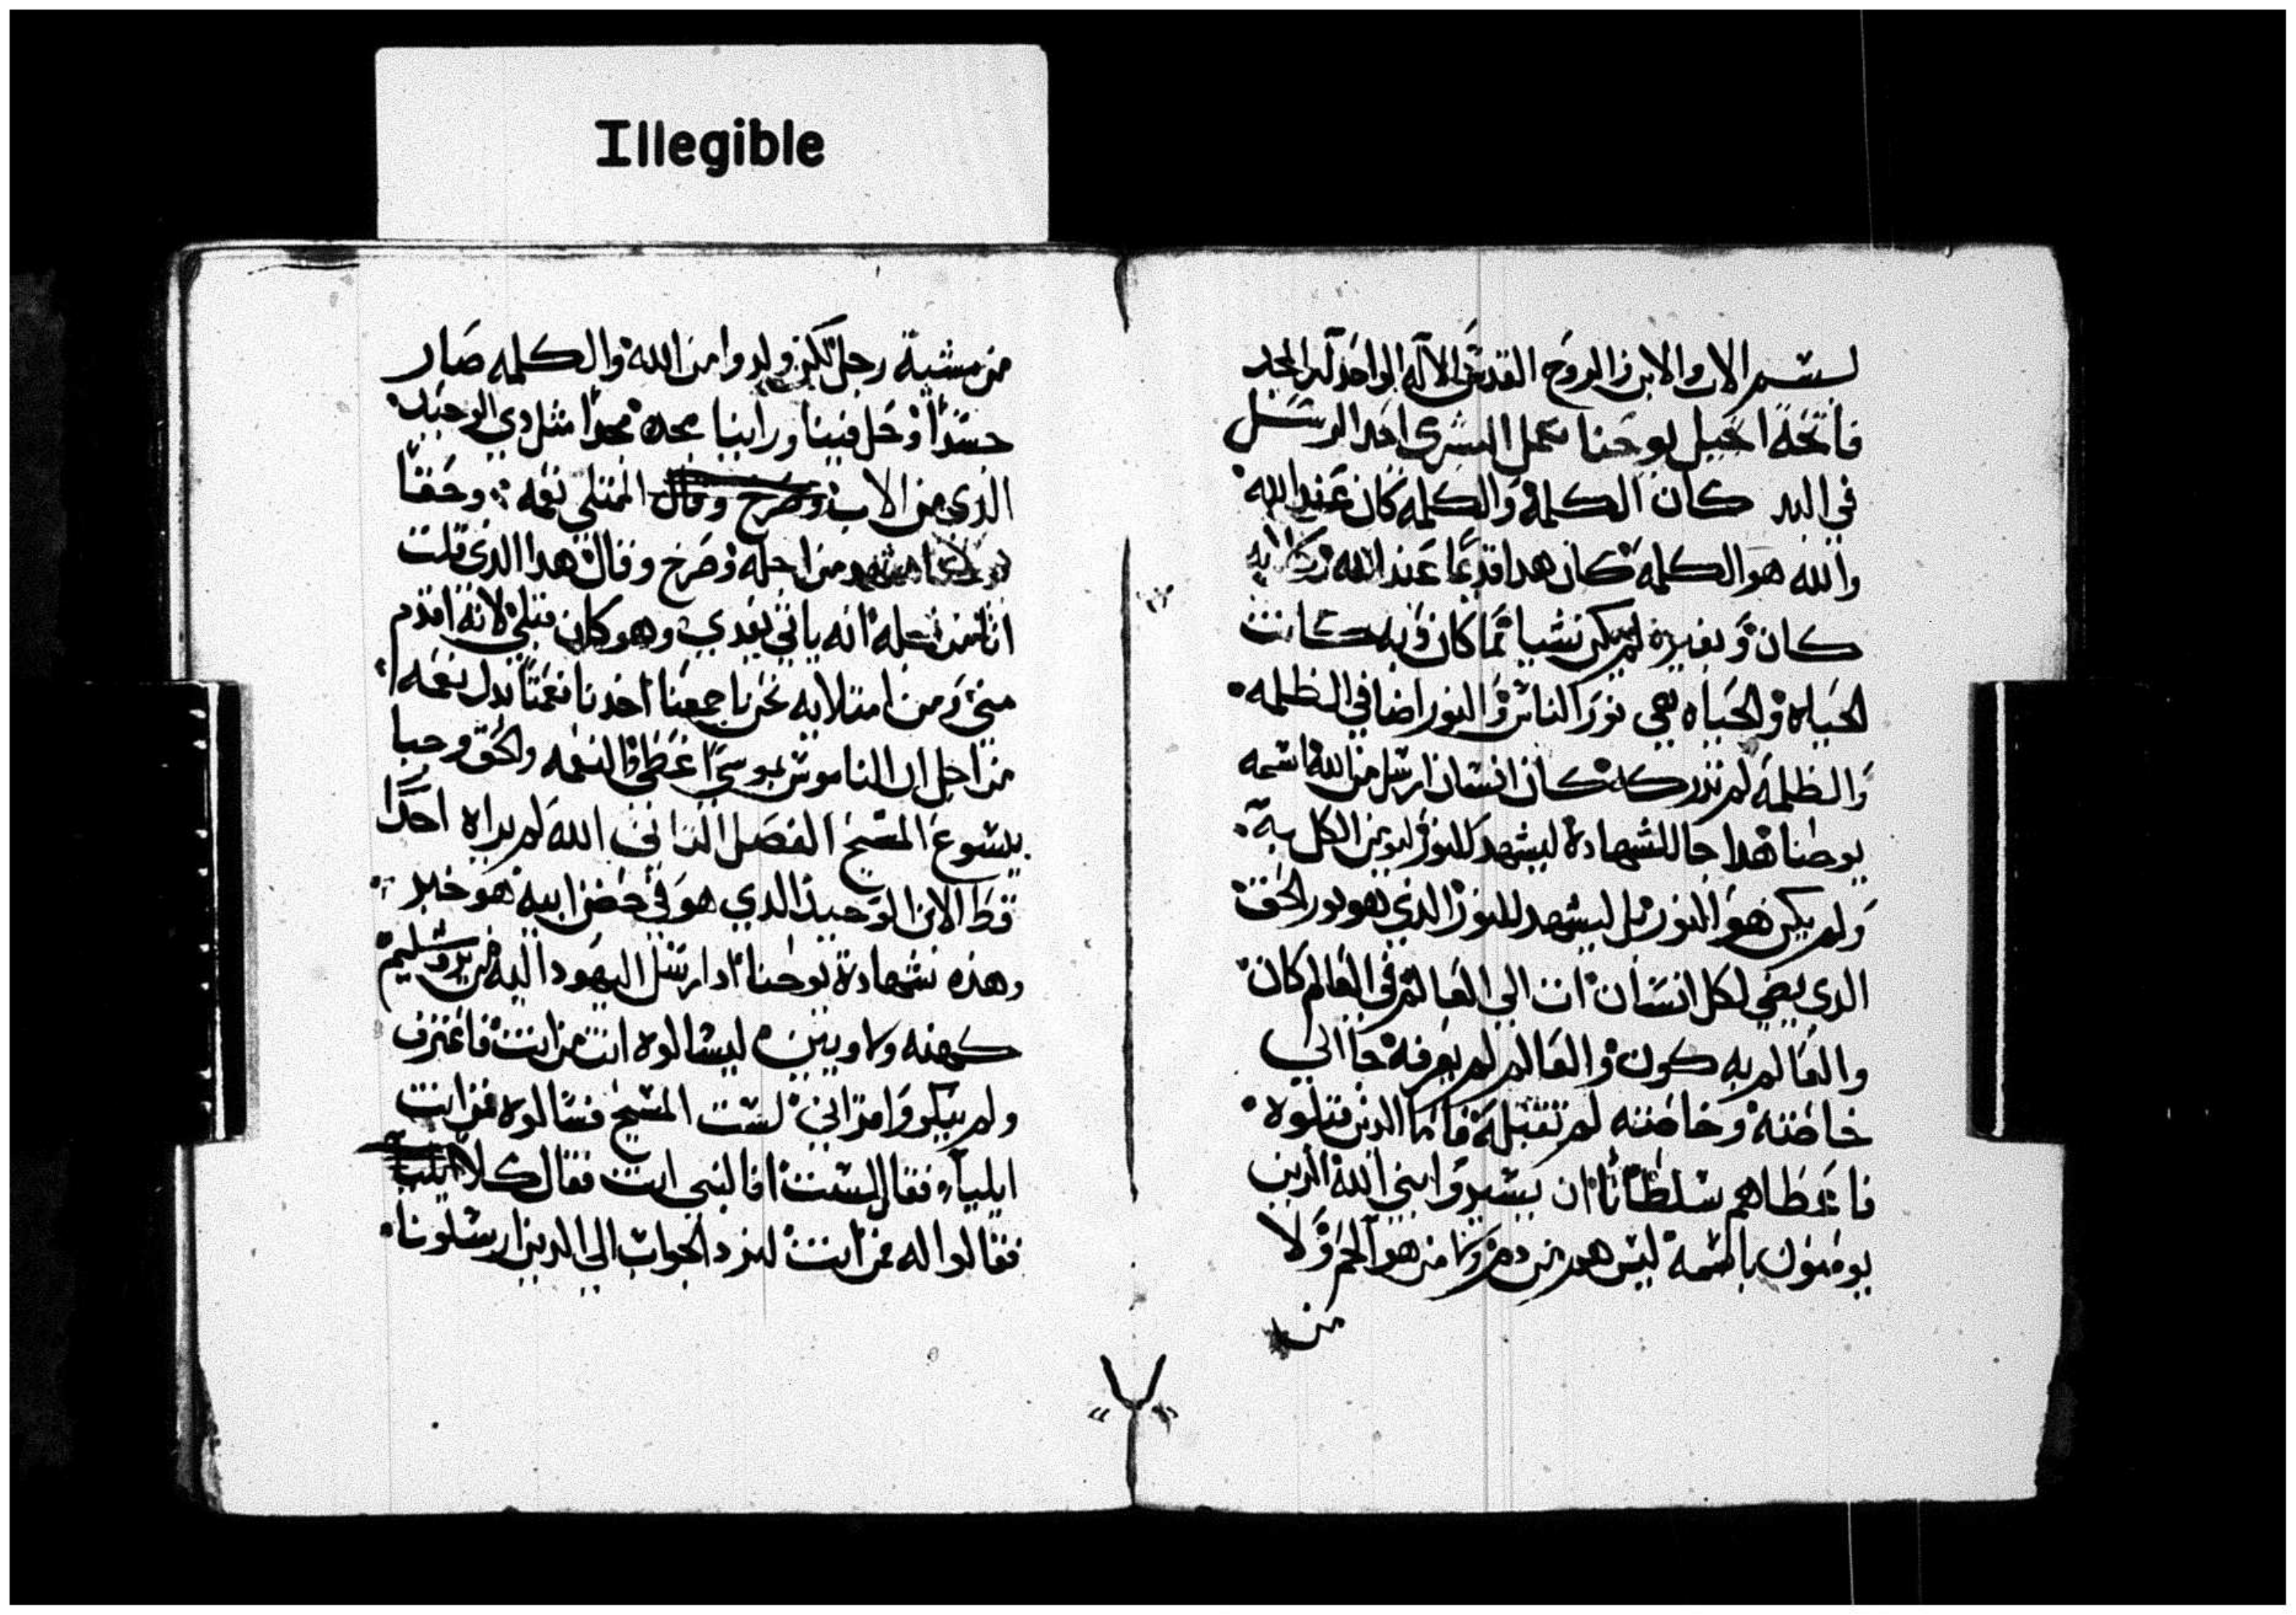 Illegible
بسم الاب والابن والروح القدس الاله الواحد له المجد
فاتحة انجيل يوحنا عمل البشرى احد الرسل
في البد كان الكلمة والكلمه كان عند الله
والله هو الكلمه كان هدا قديما عند الله
كان وبغيره لم يكن شيا مما كان وبه كانت
الحياه والحياه هي نور الناس والنور اضا في الظلمه
والظلمة لم تدركه كان انسان ارسل من الله اسمه
يوحنا هدا جا للشهادة ليشهد للنور ليومن الكل به
ولم يكن هو النور بل ليشهد للنور الدي هو نور الحق
الدي يضي لكل انسان ات الي العالم في العالم كان
والعالم به كون والعالم لم يعرفه جا الي
خاصته وخاصته لم تقبله فاما الدين قبلوه
فاعطاهم سلطانا ان يصيروا بني الله الدين
يومنون باسمه ليس هم من دم ولا من هوا لحم ولا
من
من مشية رجل لكن ولدوا من الله والكلمه صار
جسدا وحل فينا وراينا مجده مجدا مثل دي الوحيد
الدي من الاب وصرخ وقال الممتلي نعمه وحقا
من اجله وصرخ وقال هدا الدي قلت
انا من اجله انه ياتي بعدي وهو كان قبلي لانه اقدم
مني ومن امتلايه نحن باجمعنا اخدنا نعمتا بدل نعمه
من اجل ان الناموس بموسى اعطي والنعمه والحق وجبا
بيسوع المسيح الفصل التاني الله لم يراه احدا
قط الابن الوحيد الدي هو في حضن ابيه هو خبر
وهذه شهادة يوحنا اد ارسل اليهود اليه من يروشليم
كهنه ولاويين ليسالوه انت من انت فاعترف
ولم ينكر وامر اني لست المسيح فسالوه فمن انت
ايليا فقال لست افالنبي انت فقال كلا
فقالوا له فمن انت لنرد الجواب الي الدين ارسلونا